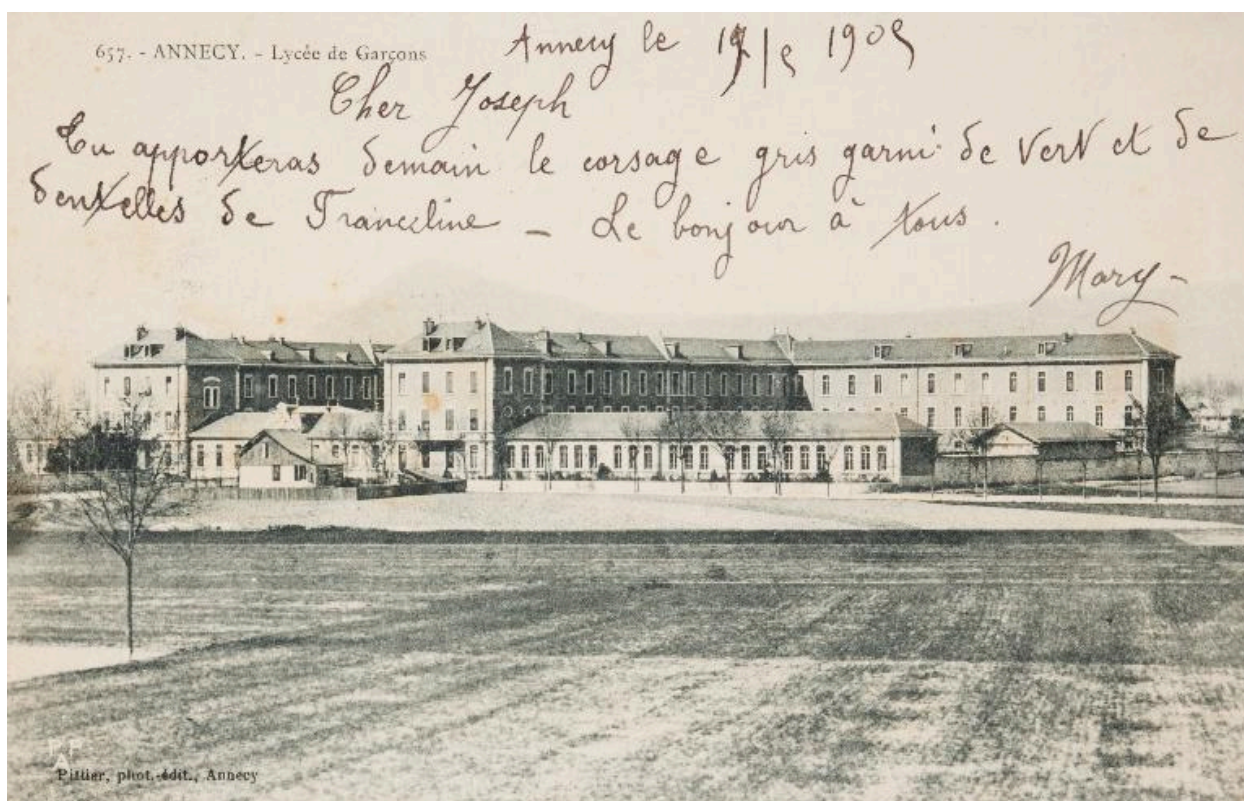 657. - ANNECY. - Lycée de Garçons
Annecy le 1905
Cher Joseph
Tu apporteras demain le corsage gris garni de vert et de
dentelles de Franceline - Le bonjour à tous.
Mary -
Pittier, phot.-édit., Annecy